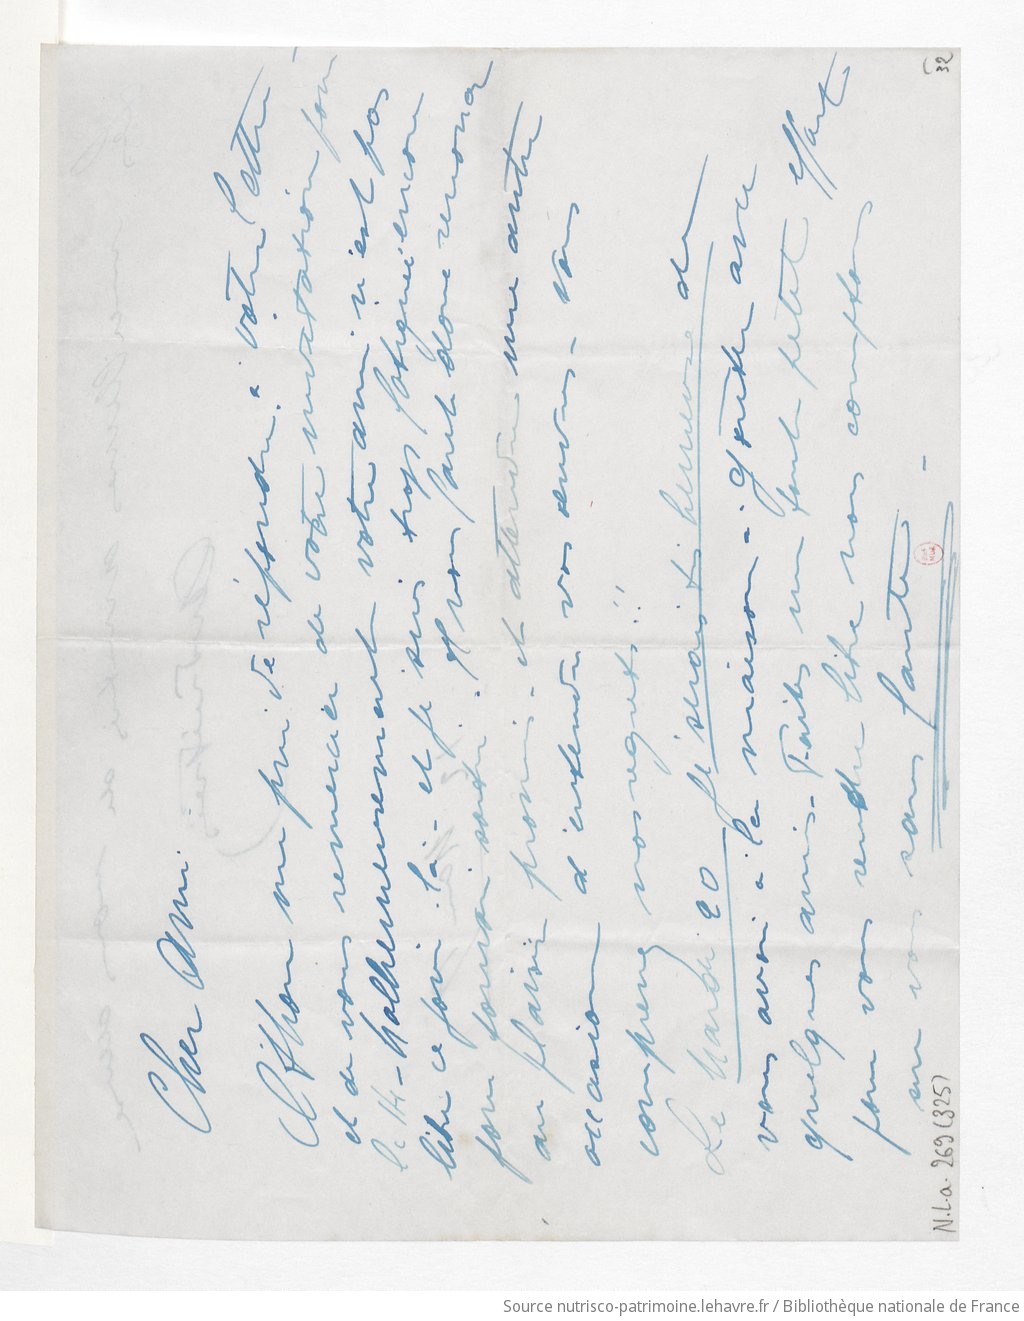 Cher Ami.
Alphon me prie de répondre à votre lettre
et de vous remercier de votre invitation pour
le 14 - Malheureusement votre ami n'est pas
libre ce jour là - et je suis trop fatiguée encore
pour pouvoir sortir. Il nous faut donc renoncer
au plaisir promis - et attendre une autre
occasion d'entendre vos œuvres - Vous
comprenez nos regrets!!
Le Mardi 20 je serais très heureuse de
vous avoir à la maison à goûter avec
quelques amis - Faites un tout petit effort
pour vous rendre libre nous comptons
sur vous sans faute -
32
N.L.a. 269 (325)
Source nutrisco-patrimoine.lehavre.fr / Bibliothèque nationale de France